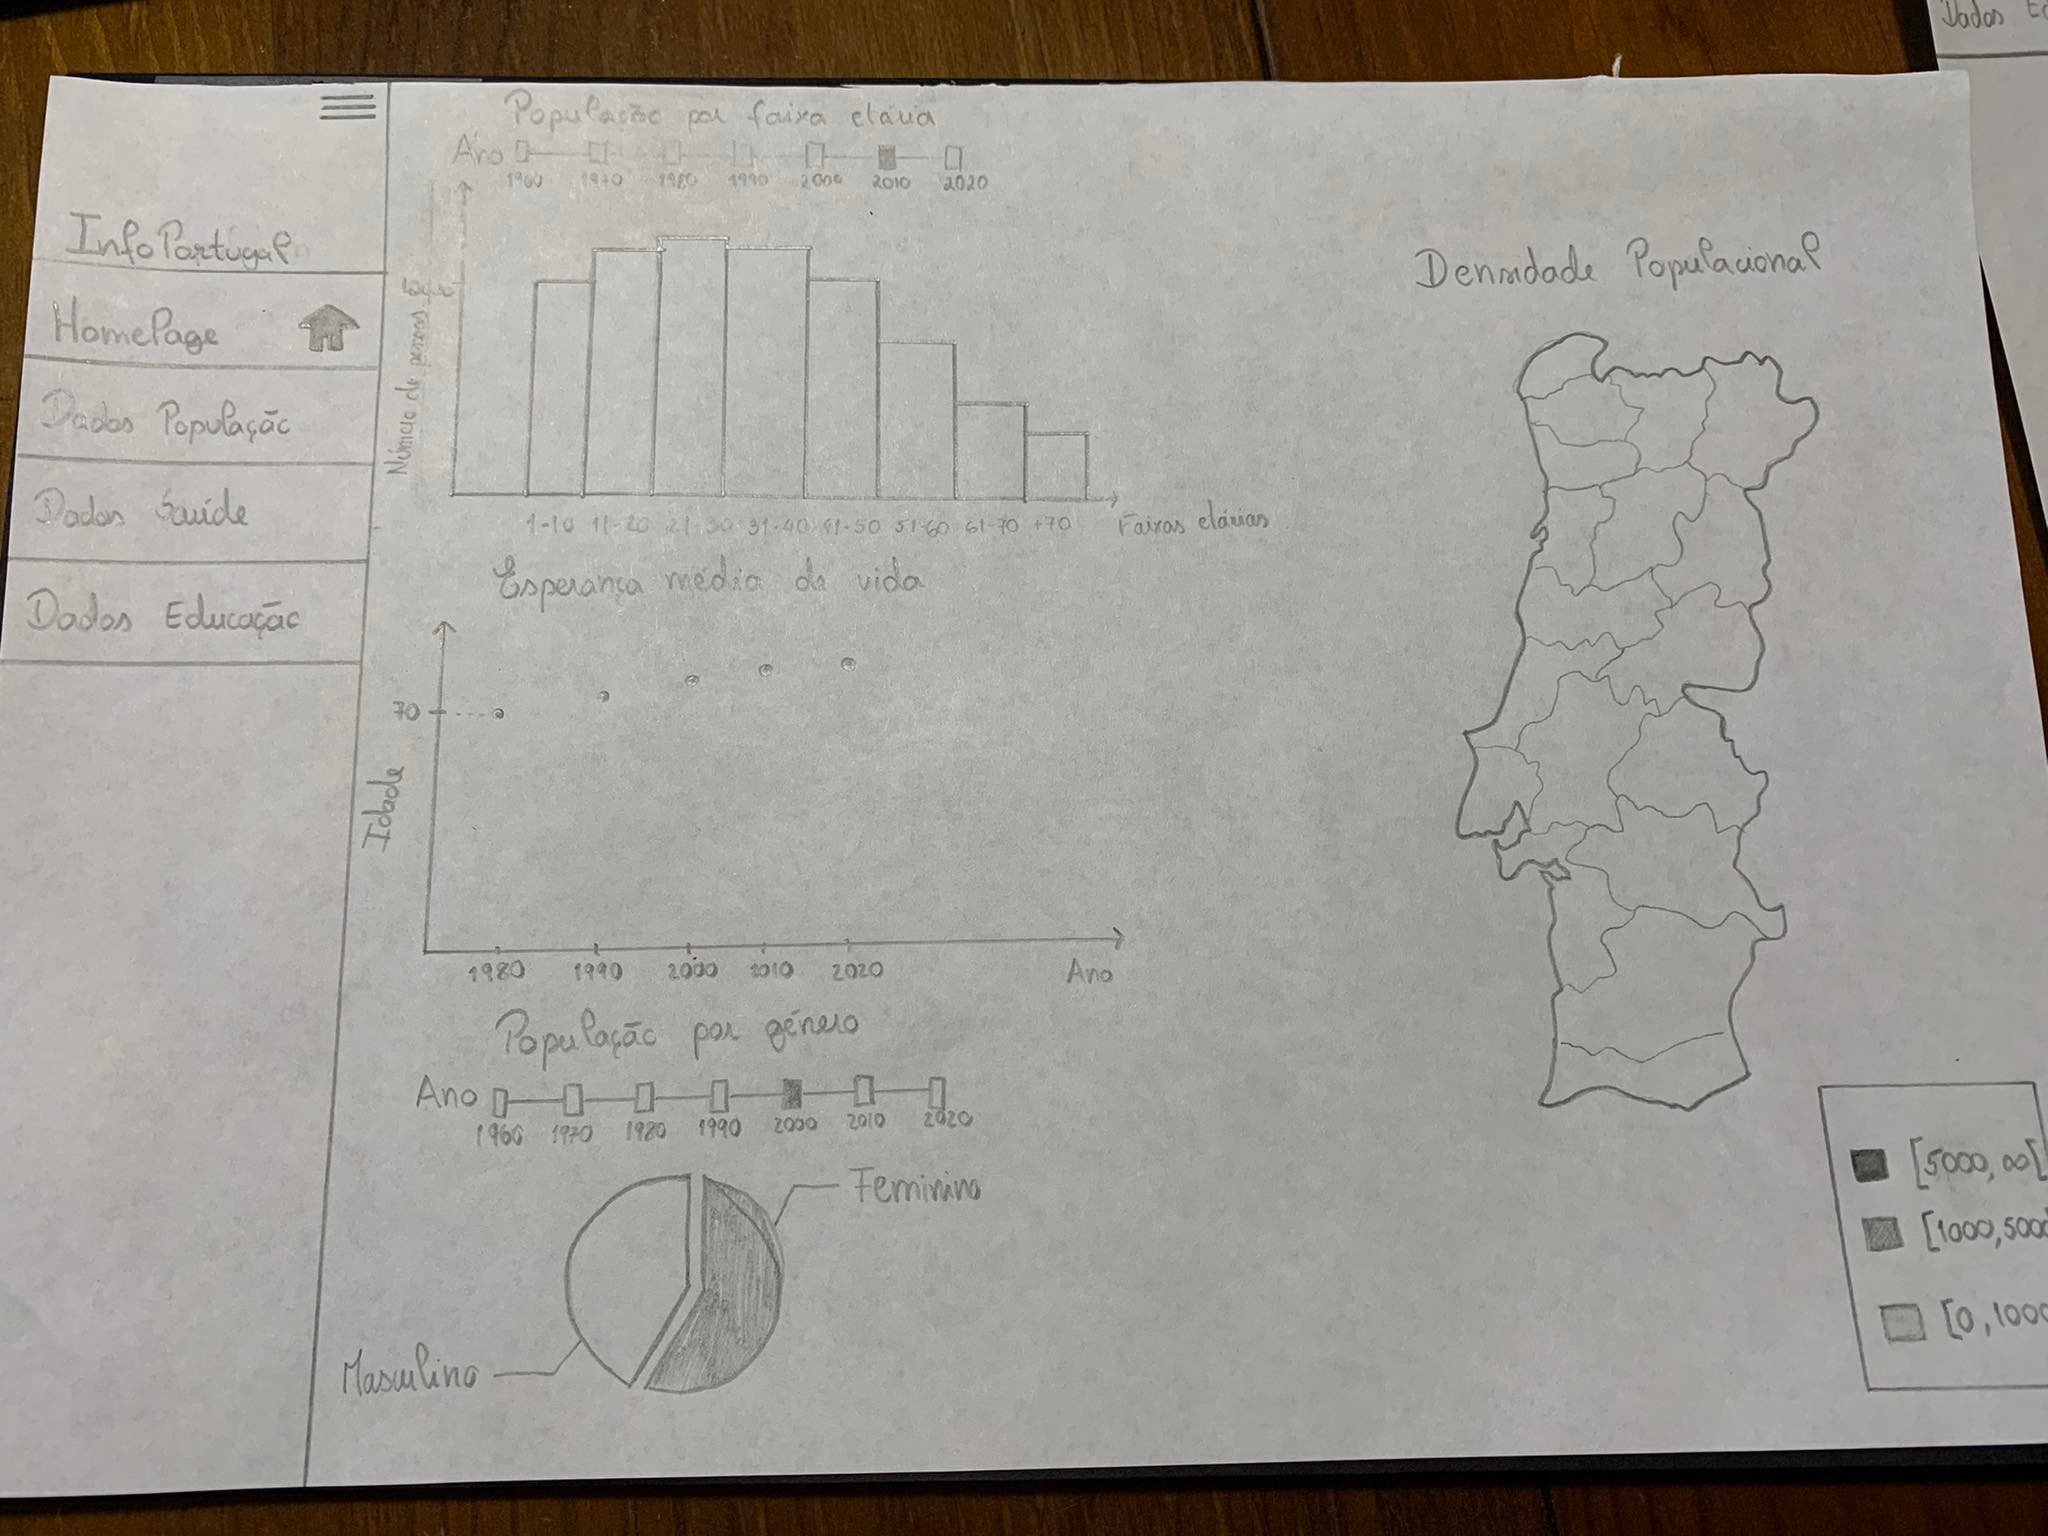 InfoPortugal
HomePage
Dados População
Dados Saúde
Dados Educação
População por faixa etária
Ano
1960 1970 1980 1990 2000 2010 2020
Número de pessoas
1-10 11-20 21-30 31-40 41-50 51-60 61-70 +70
Faixas etárias
Esperança média de vida
70
Idade
1980 1990 2000 2010 2020
Ano
População por género
Ano
1960 1970 1980 1990 2000 2010 2020
Feminino
Masculino
Densidade Populacional
[5000, ∞[
[1000, 5000
[0, 1000
Dados